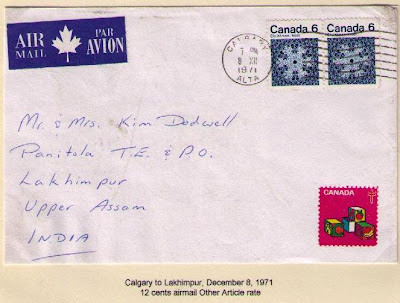 AIR MAIL PAR AVION
Canada 6 Canada 6
CALGARY
7 PM
8 XII
1971
ALTA
Mr. & Mrs. Kim Dodwell
Panitola T.E. & P.O.
Lakhimpur
Upper Assam
INDIA
Calgary to Lakhimpur, December 8, 1971
12 cents airmail Other Article rate